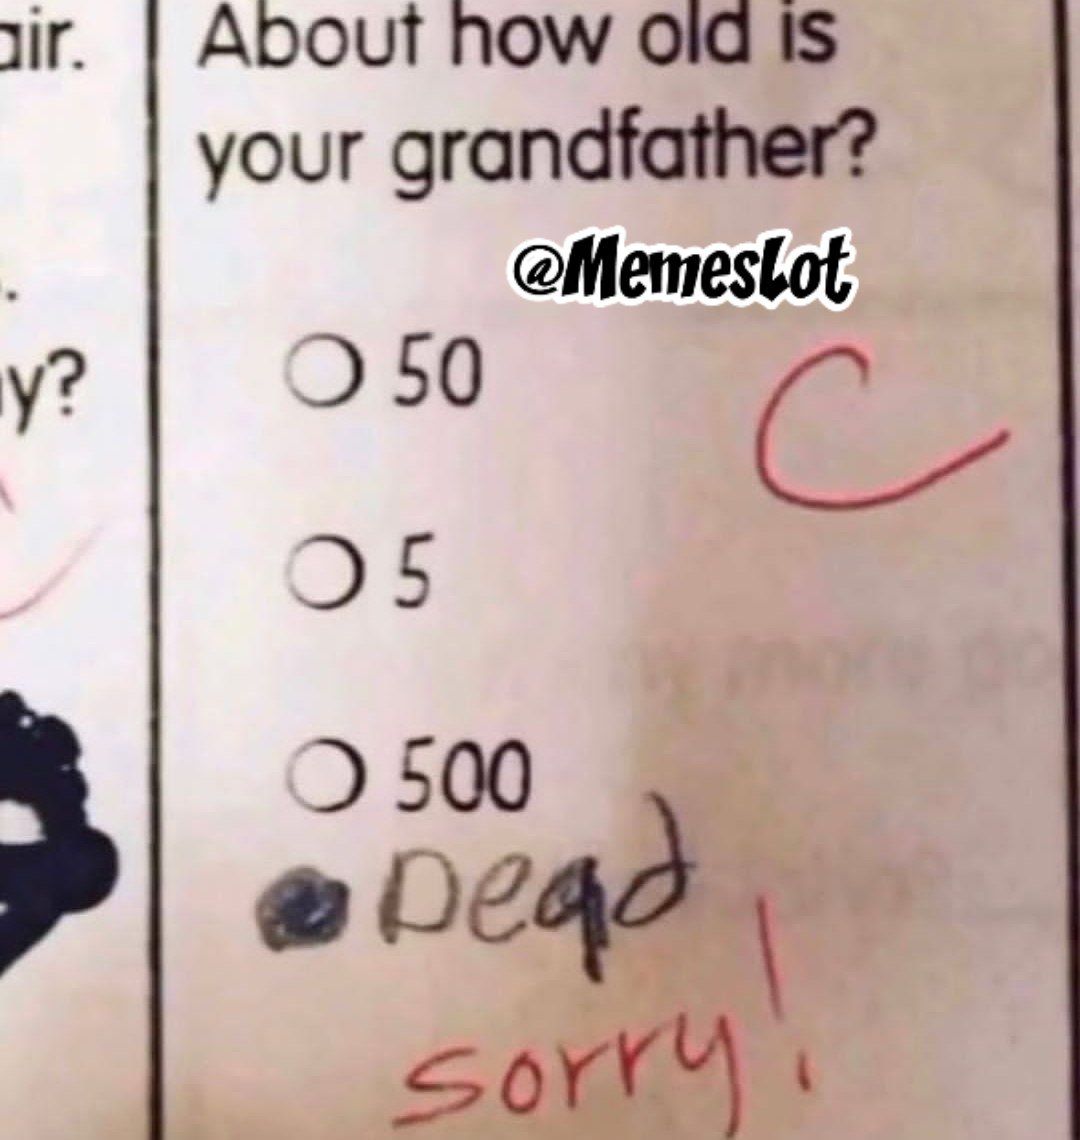 air.
About how old is
your grandfather?
@MemesLot
.
y?
50
5
500
C
Dead
sorry!